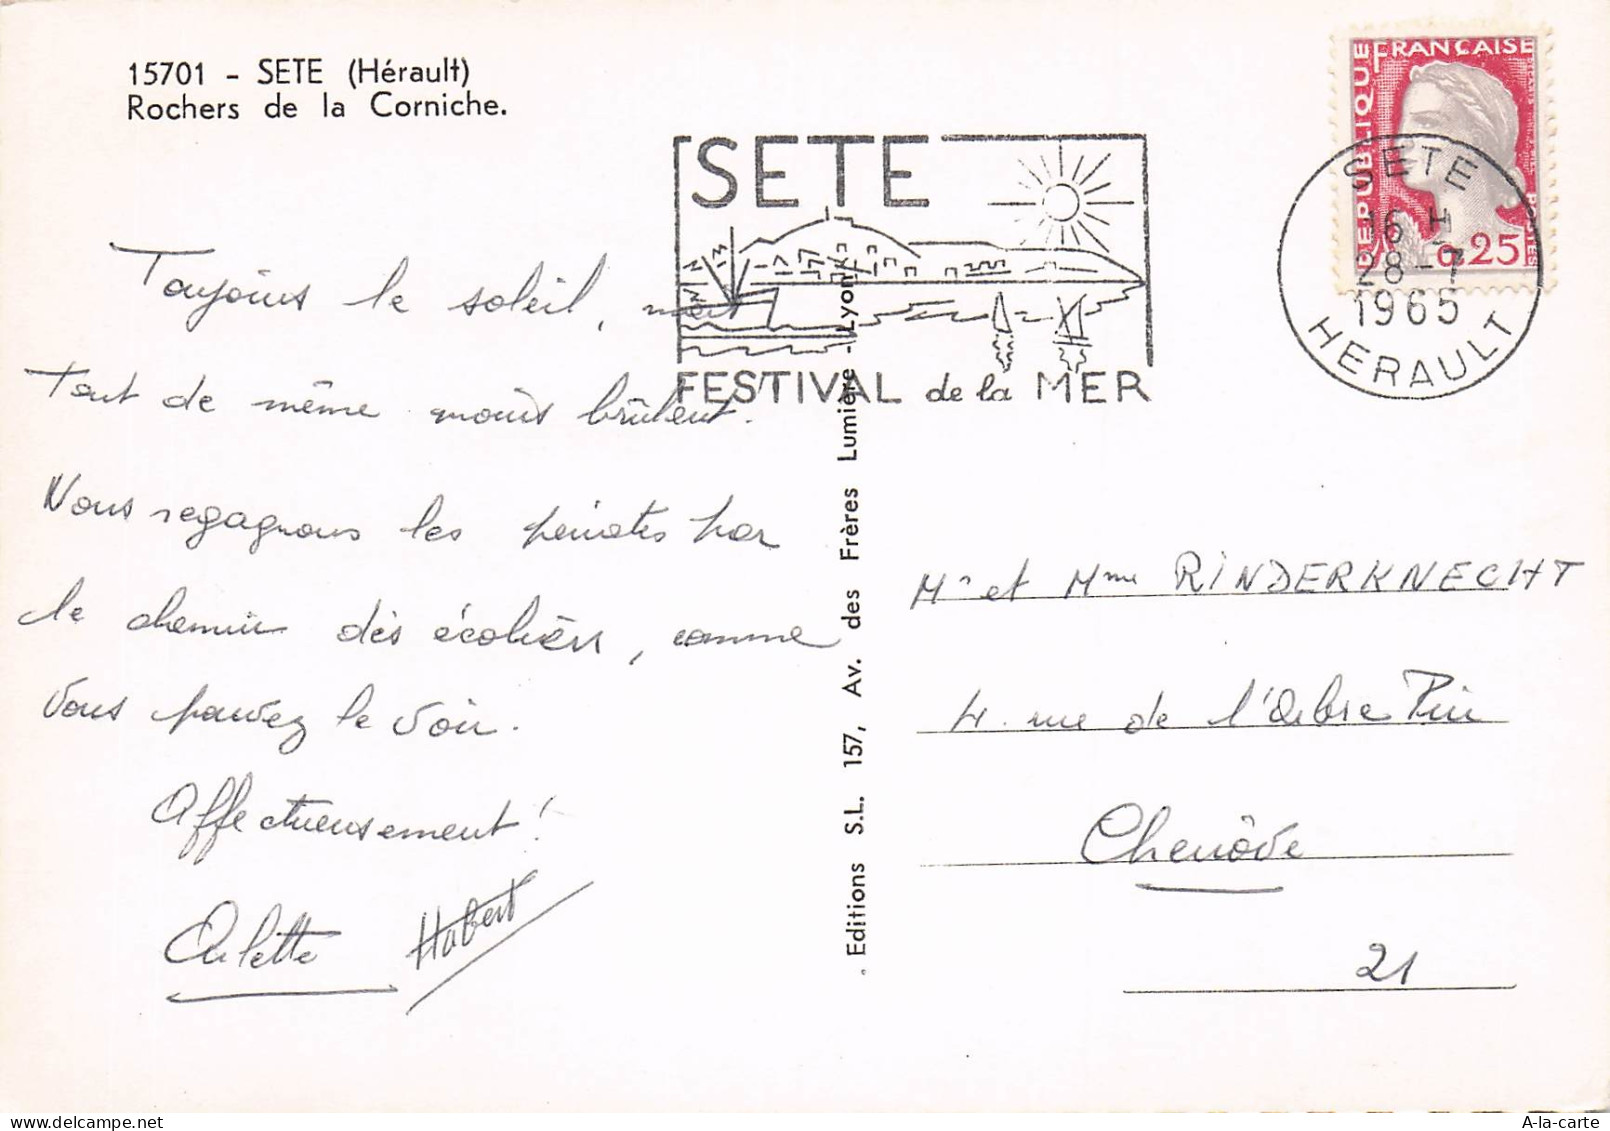 15701 - SETE (Hérault)
Rochers de la Corniche.
REPUBLIQUE FRANÇAISE
POSTES
0,25
SETE
16 H
28-7
1965
HERAULT
SETE
FESTIVAL de la MER
Toujours le soleil, mais
Tout de même moins brûlant.
Nous regagnons les pénates par
le chemin des écoliers, comme
vous pouvez le voir.
Affectueusement!
Arlette Hubert
Editions S.L. 157, Av. des Frères Lumière - Lyon
Mr et Mme RINDERKNECHT
4. rue de l'Arbre Pin
Chenôve
21
A-la-carte